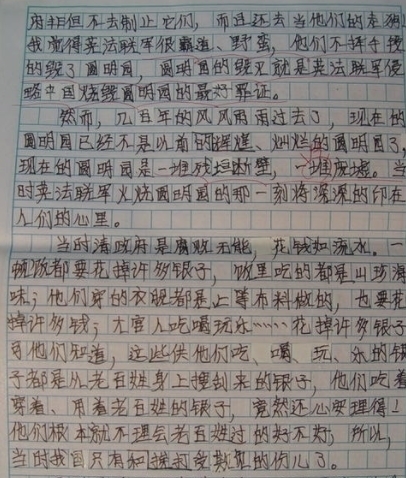 府非但不去制止它们，而且还去当他们的走狗！
我觉得英法联军很霸道、野蛮，他们不择手段
的毁了圆明园，圆明园的毁灭就是英法联军侵
略中国烧毁圆明园的最好罪证。
然而，几百年的风风雨雨过去了，现在的
圆明园已经不是以前的辉煌、灿烂的圆明园了，
现在的圆明园是一堆残垣断壁，一堆废墟。当
时英法联军火烧圆明园的那一刻将深深的印在
人们的心里。
当时清政府是腐败无能，花钱如流水。一
顿饭都要花掉许多银子，饭里吃的都是山珍海
味；他们穿的衣服都是上等布料做的，也要花
掉许多钱；大官人吃喝玩乐……花掉许多银子
可他们知道，这些供他们吃、喝、玩、乐的银
子都是从老百姓身上搜刮来的银子，他们吃着
穿着、用着老百姓的银子，竟然还心安理得！
他们根本就不理会老百姓过的好不好，所以，
当时我国只有和挨打受欺犯的份儿了。